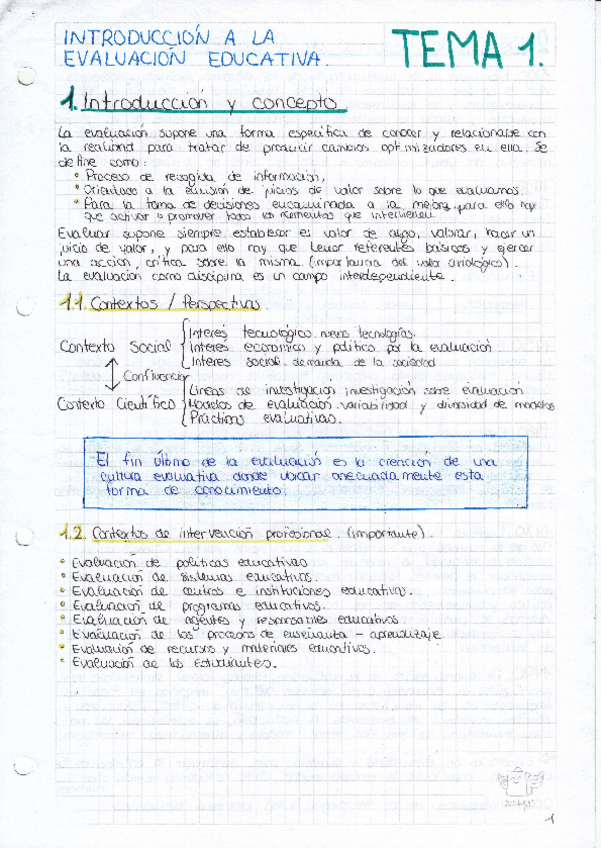 INTRODUCCIÓN A LA
EVALUACIÓN EDUCATIVA.
TEMA 1.
1. Introducción y concepto
La evaluación supone una forma específica de conocer y relacionarse con
la realidad para tratar de producir cambios optimizadores en ella. Se
define como:
• Proceso de recogida de información,
• Orientado a la emisión de juicios de valor sobre lo que evaluamos.
• Para la toma de decisiones encaminada a la mejora, para ello hay
que activar o promover todos los elementos que intervienen.
Evaluar supone siempre establecer el valor de algo, valorar, hacer un
juicio de valor, y para ello hay que tener referentes básicos y ejercer
una acción crítica sobre la misma. (importancia del valor axiológico).
La evaluación como disciplina es un campo interdependiente.
1.1. Contextos / Perspectivas.
Contexto Social
Interés tecnológico. nuevas tecnologías.
Interés económico y político por la evaluación
Interés social. demanda de la sociedad
Confluencia
Contexto Científico
Líneas de investigación investigación sobre evaluación
Modelos de evaluación. variabilidad y diversidad de modelos
Prácticas evaluativas.
El fin último de la evaluación es la creación de una
cultura evaluativa donde valorar adecuadamente esta
forma de conocimiento.
1.2. Contextos de intervención profesional. (importante).
• Evaluación de políticas educativas
• Evaluación de sistemas educativos.
• Evaluación de centros e instituciones educativas.
• Evaluación de programas educativos.
• Evaluación de agentes y responsables educativos.
• Evaluación de los procesos de enseñanza - aprendizaje.
• Evaluación de recursos y materiales educativos.
• Evaluación de los estudiantes.
1